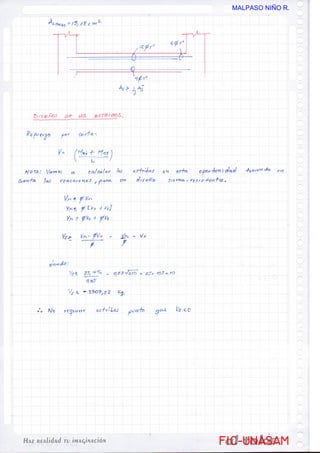 MALPASO NIÑO R.
As max = 15,18 cm²
2φ1"
4φ1"
4φ1"
DISEÑO DE LOS ESTRIBOS.
Refuerzo por corte:
Vu (Mni + Mnj / L)
NOTA: Vamos a calcular los estribos en esta oportunidad tomando en
cuenta las reacciones, para un diseño sismo-resistente.
Vu ≤ φVn
Vu ≤ φ [Vc + Vs]
Vu = φVc + φVs
Vs = Vu - φVc / φ = Vu / φ - Vc
donde:
Vs = - 3903,82 Kg.
∴ No requiere estribos puesto que Vs < 0
Haz realidad tu imaginación
FIC-UNASAM